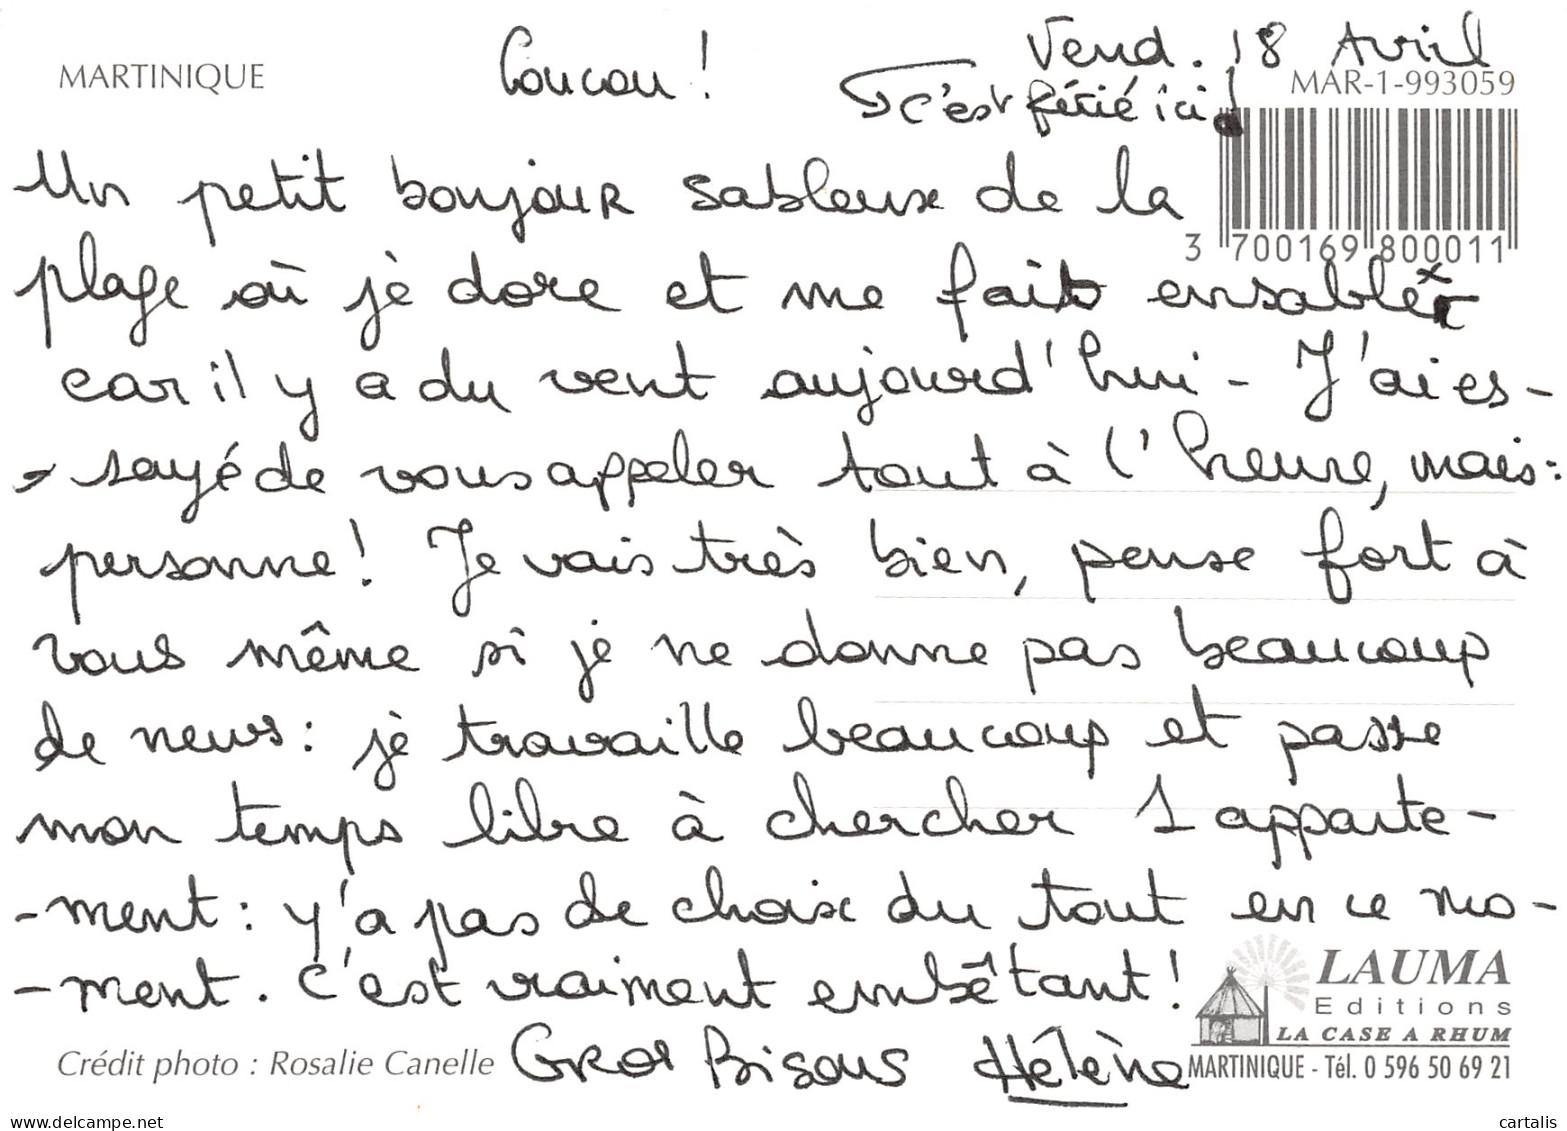 MARTINIQUE
Coucou !
Vend. 18 Avril
c'est férié ici !
MAR-1-993059
3 700169 800011
Un petit bonjour sableux de la
plage où je dore et me fais ensabler
car il y a du vent aujourd'hui - J'ai es-
-sayé de vous appeler tout à l'heure, mais :
personne ! Je vais très bien, pense fort à
vous même si je ne donne pas beaucoup
de news : je travaille beaucoup et passe
mon temps libre à chercher 1 apparte-
-ment : y'a pas de choix du tout en ce mo-
-ment. C'est vraiment embêtant !
Gros Bisous Hélène
Crédit photo : Rosalie Canelle
LAUMA
Editions
LA CASE A RHUM
MARTINIQUE - Tél. 0 596 50 69 21
www.delcampe.net
cartalis